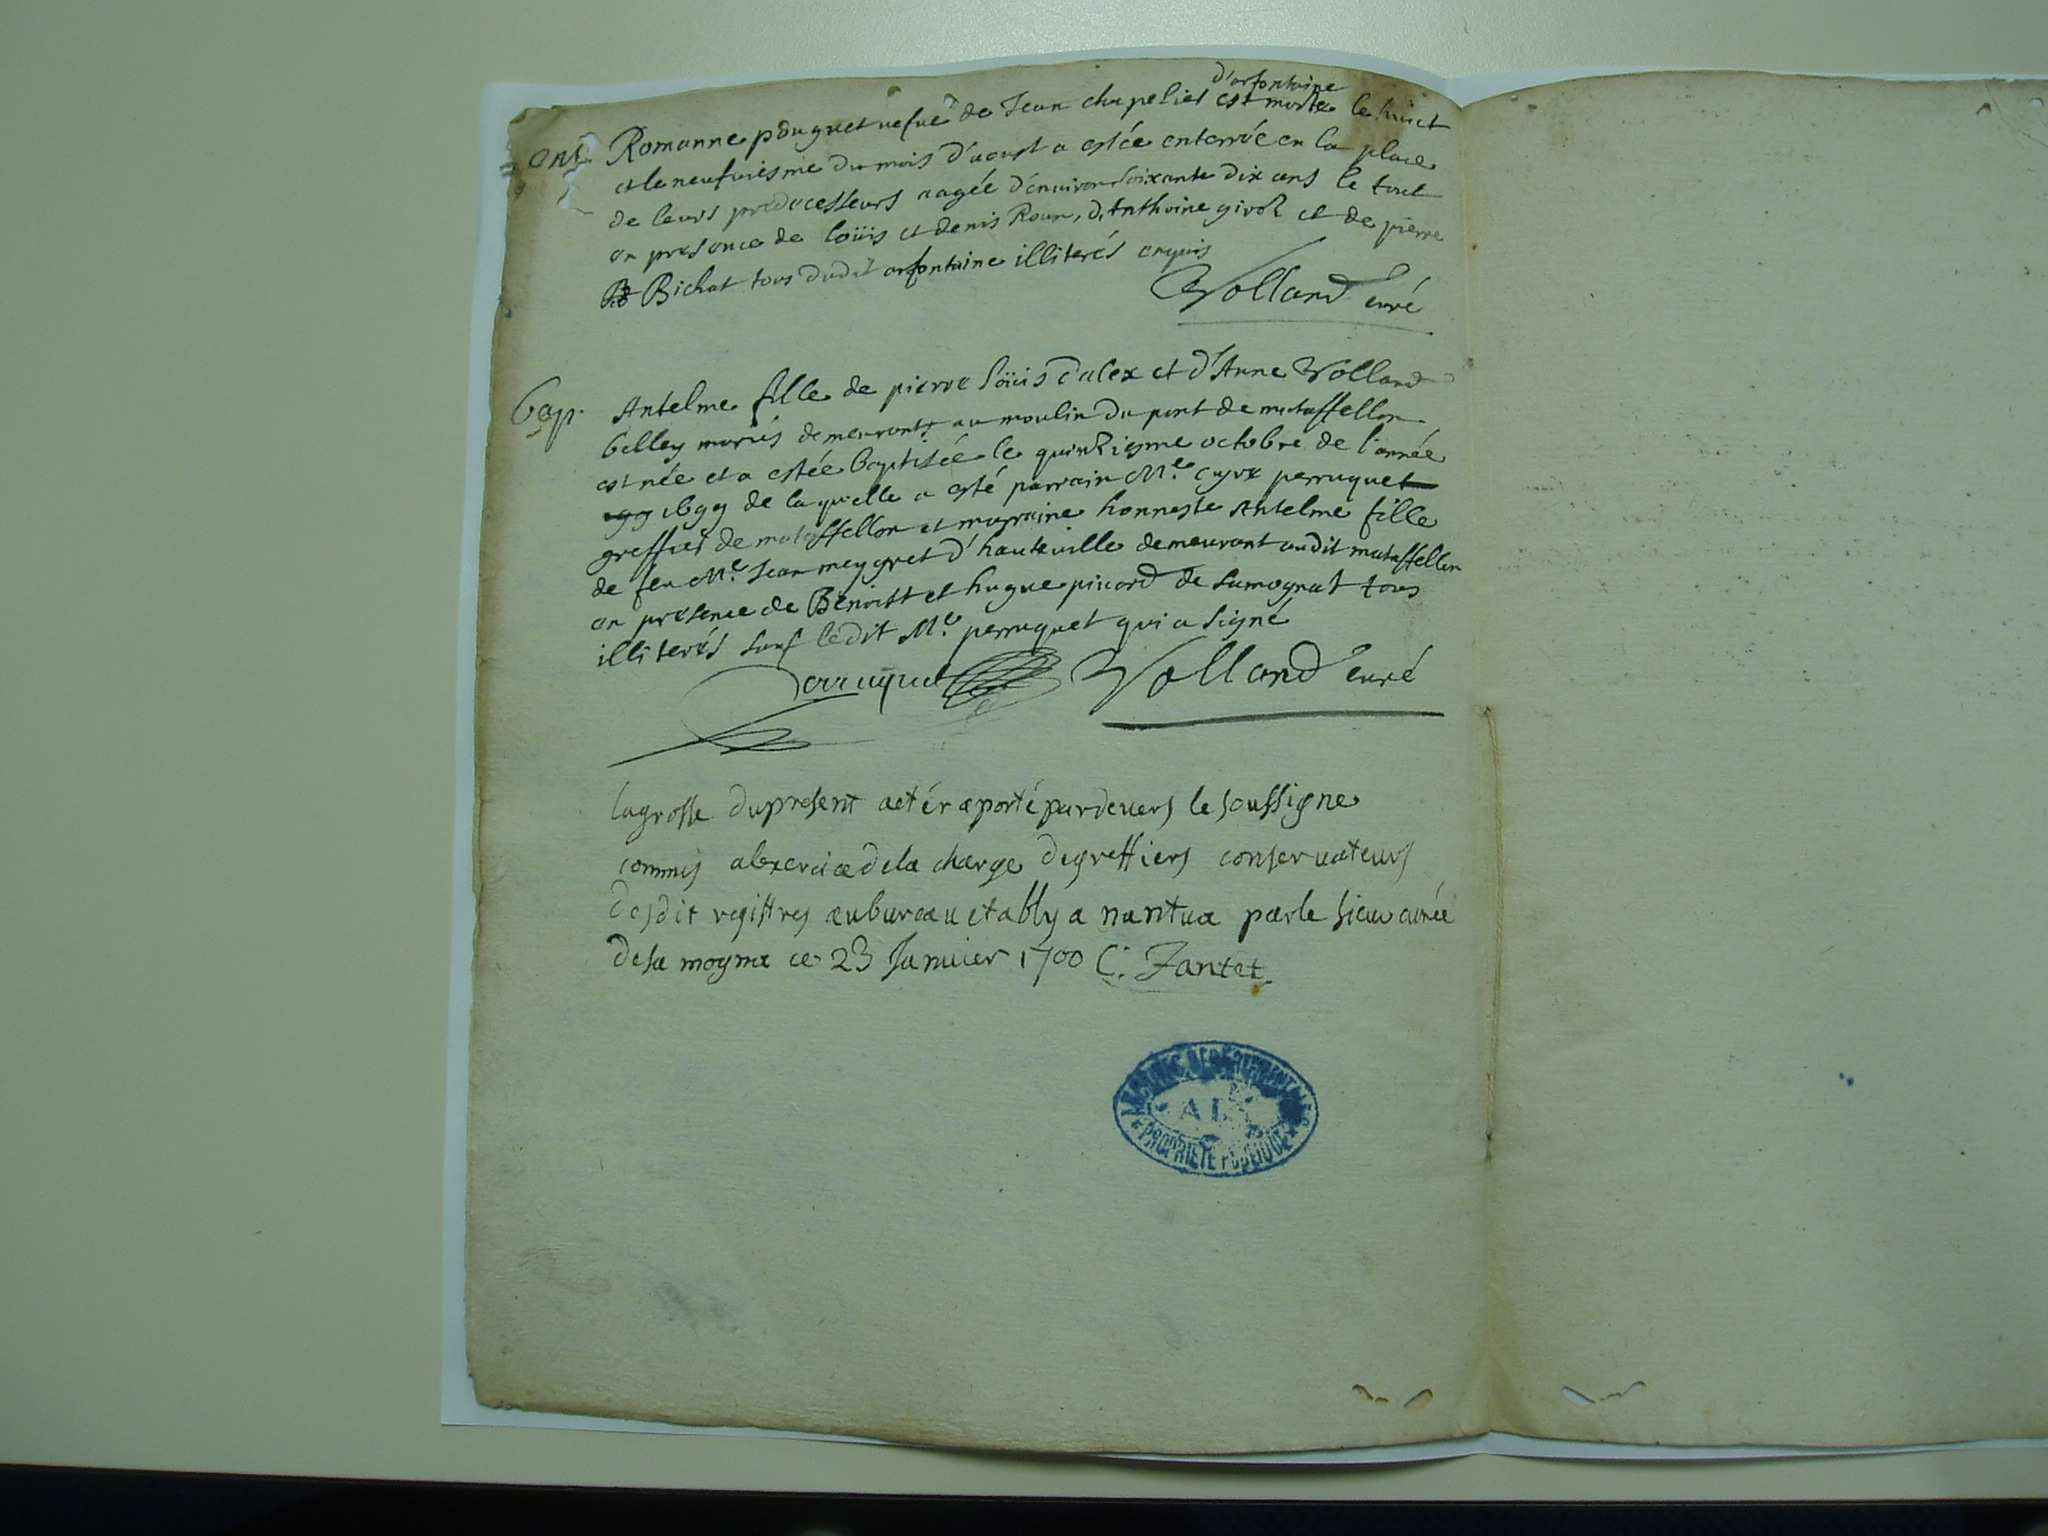 d'orfontaine
ent. Romanne pouguet vefue de Jean chapelier est morte le huict
et le neufviesme du mois d'aoust a estée enterrée en la place
de leurs predecesseurs aagée d'environ soixante dix ans le tout
en presence de loüis et denis Roux, d'Anthoine girod et de pierre
Bichat tous dudit orfontaine illiterés enquis
Volland curé
bap. Antelme fille de pierre loüis dalex et d'Anne Volland
belley mariés demeurants au moulin du pont de mataffellon
est née et a estée baptisée le quinziesme octobre de l'année
1699 de laquelle a esté parrain Me. perruquet
greffier de mataffellon et marraine honneste Anthelme fille
de feu Me. Jean meygret d'hauteville demeurant audit mataffellon
en presence de Benoist et hugue picard de samognat tous
illiterés sauf ledit Me. perruquet qui a signé
Perruquet Volland curé
lagrosse dupresent aetér aporté pardevers le soussigne
commis alexercice dela charge degreffiers conservateurs
desdit registres aubureau etably a nantua parle sieur curée
desa mogna ce 23 Janvier 1700 C. Jantet
ARCHIVES DEPARTEMENTALES
AIN
PROPRIETE PUBLIQUE